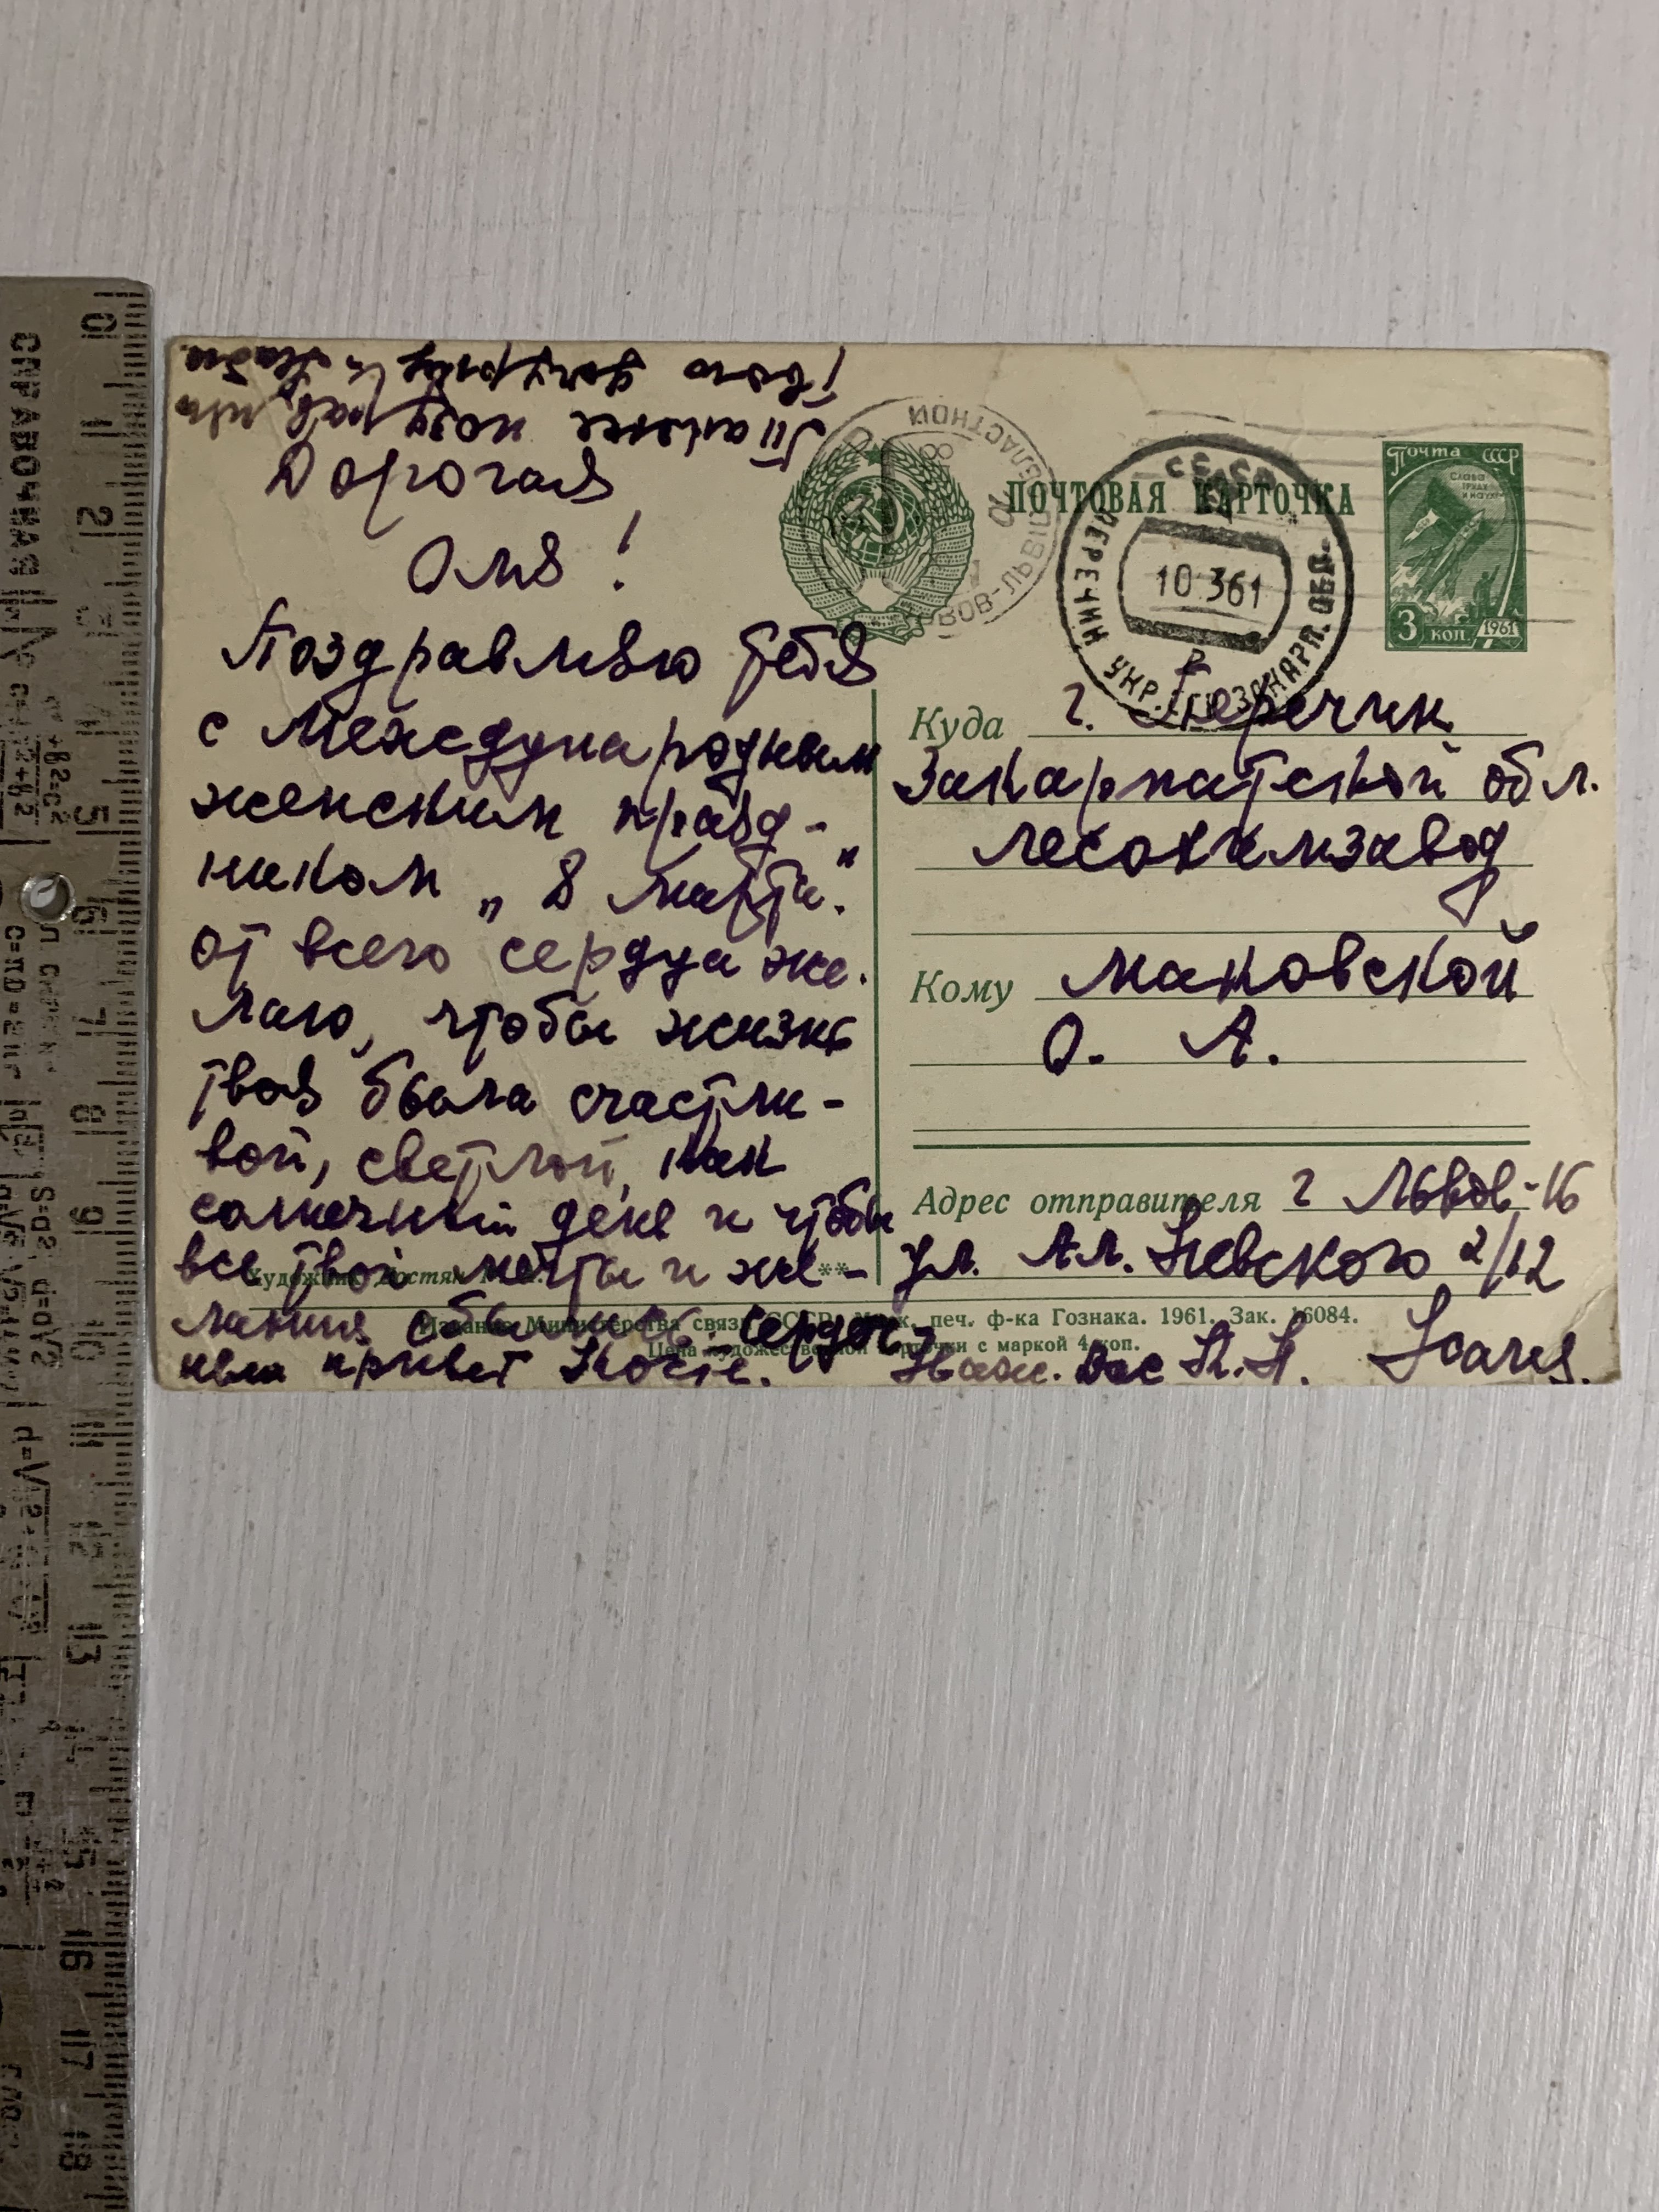 Также поздравляю
твою дочурку
Дорогая
Оля!
Поздравляю тебя
с Международным
женским празд-
ником „8 марта".
От всего сердца же-
лаю, чтобы жизнь
твоя была счастли-
вой, светлой, как
солнечный день и чтобы
все твои мечты и же-
лания сбылись. Сердеч-
ный привет Косте.
ПОЧТОВАЯ КАРТОЧКА
ПЕРЕЧИН УКР. ЗАКАРП. ОБЛ.
10 3 61
ЛЬВОВ-ЛЬВІВ ОБЛАСТНОЙ
Почта СССР
СЛАВА
ТРУДУ
И НАУКЕ
3 коп. 1961
Куда г. Перечин
Закарпатской обл.
лесохимзавод
Кому Маковской
О. А.
Адрес отправителя г Львов-16
ул. Ал. Невского 2/12
Художник
Издание Министерства связи СССР. Моск. печ. ф-ка Гознака. 1961. Зак. 16084.
Цена художественной карточки с маркой 4 коп.
СПРАВОЧНАЯ
0 1 2 3 5 6 7 8 9 10 11 12 13 15 16 17 18